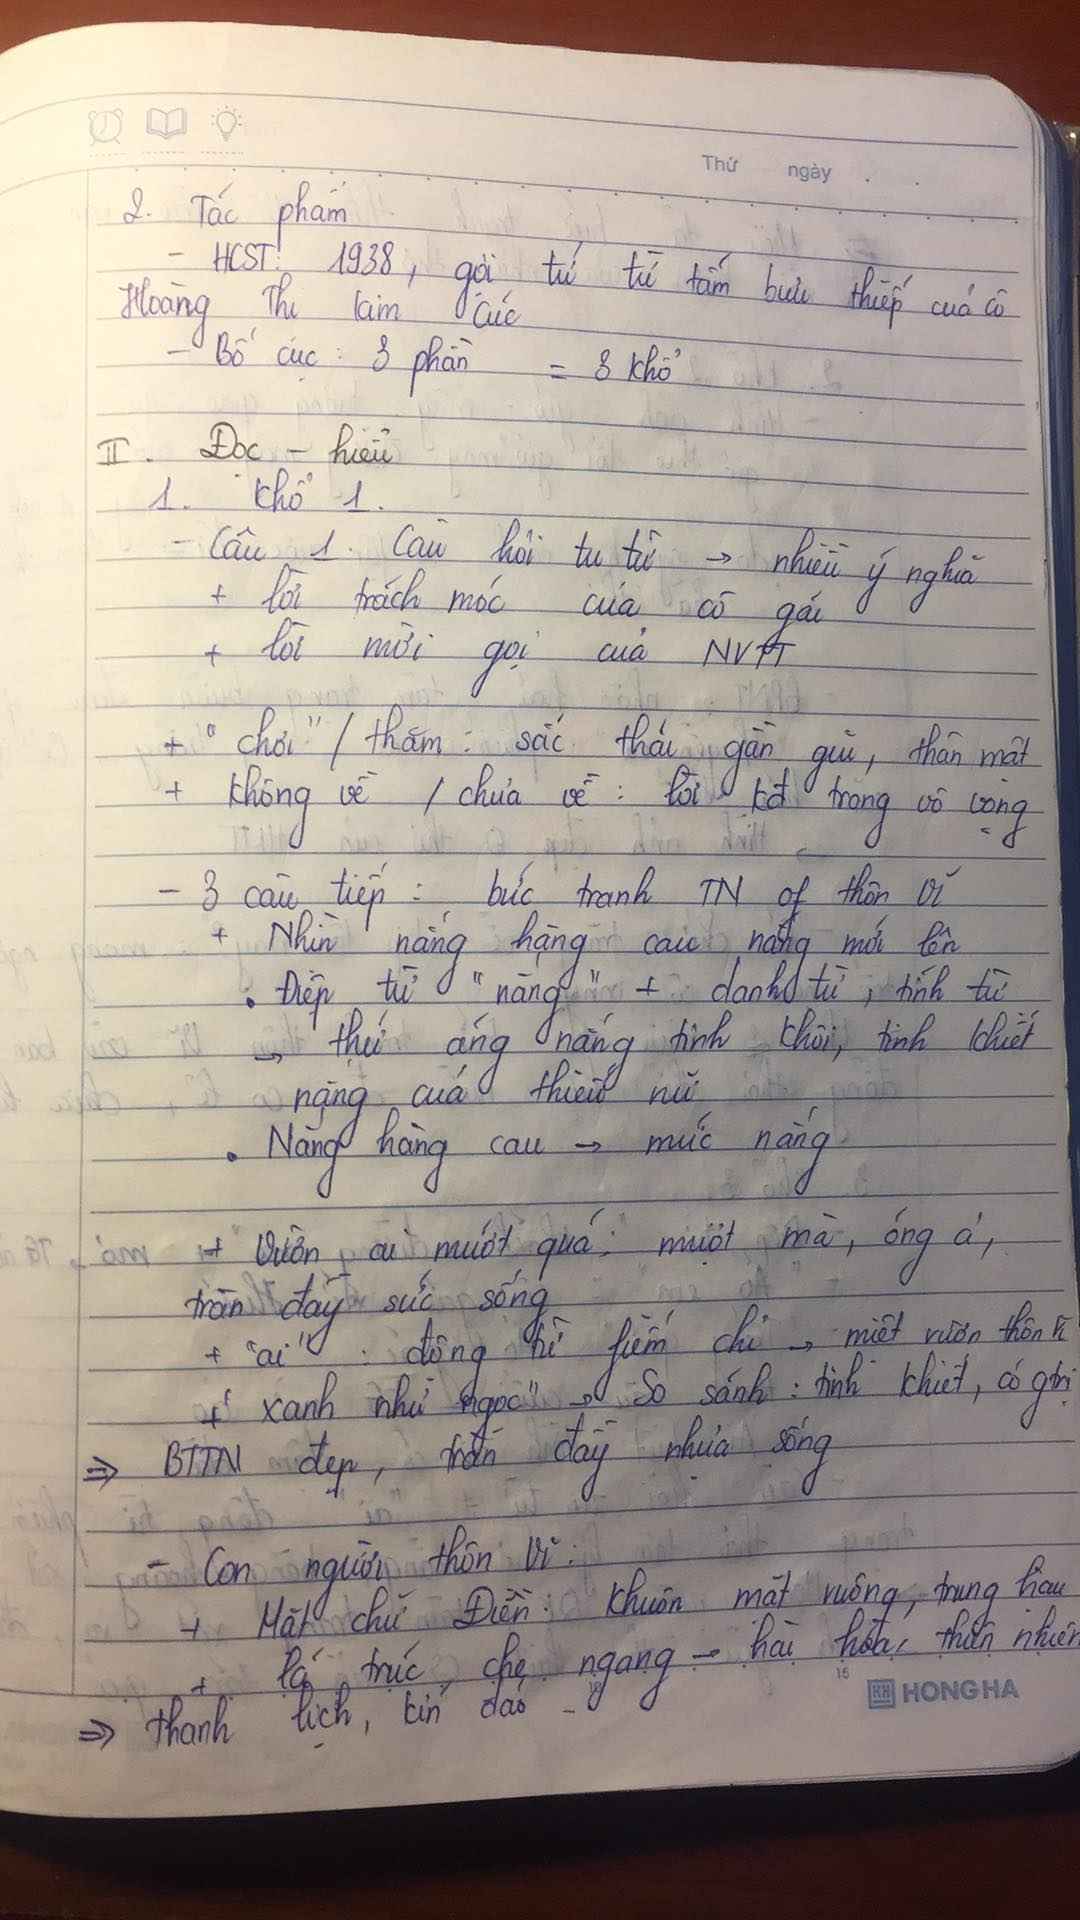 Thứ ngày
2. Tác phẩm
- HCST: 1938, gợi tứ từ tấm bưu thiếp của cô
Hoàng Thị Kim Cúc
- Bố cục: 3 phần = 3 khổ
II. Đọc - hiểu
1. Khổ 1.
- Câu 1. Câu hỏi tu từ → nhiều ý nghĩa
+ lời trách móc của cô gái
+ lời mời gọi của NVTT
+ "chơi" / thăm: sắc thái gần gũi, thân mật
+ không về / chưa về: lời kđ trong vô vọng
- 3 câu tiếp: bức tranh TN of thôn Vĩ
+ Nhìn nắng hàng cau nắng mới lên
. Điệp từ "nắng" + danh từ, tính từ
→ thứ áng nắng tinh khôi, tinh khiết
nặng của thiếu nữ
. Nắng hàng cau → mức nắng
+ Vườn ai mướt quá: mượt mà, óng ả,
tràn đầy sức sống
+ "ai": đông từ fiếm chỉ → miệt vườn thôn Vĩ
+ "xanh như ngọc" → So sánh: tinh khiết, có gtrị
⇒ BTTN đẹp, tràn đầy nhựa sống
- Con người thôn Vĩ:
+ Mặt chữ Điền: khuôn mặt vuông, trung hậu
+ lá trúc, che ngang → hài hòa, thiên nhiên
⇒ thanh lịch, kín đáo
15
HONG HA